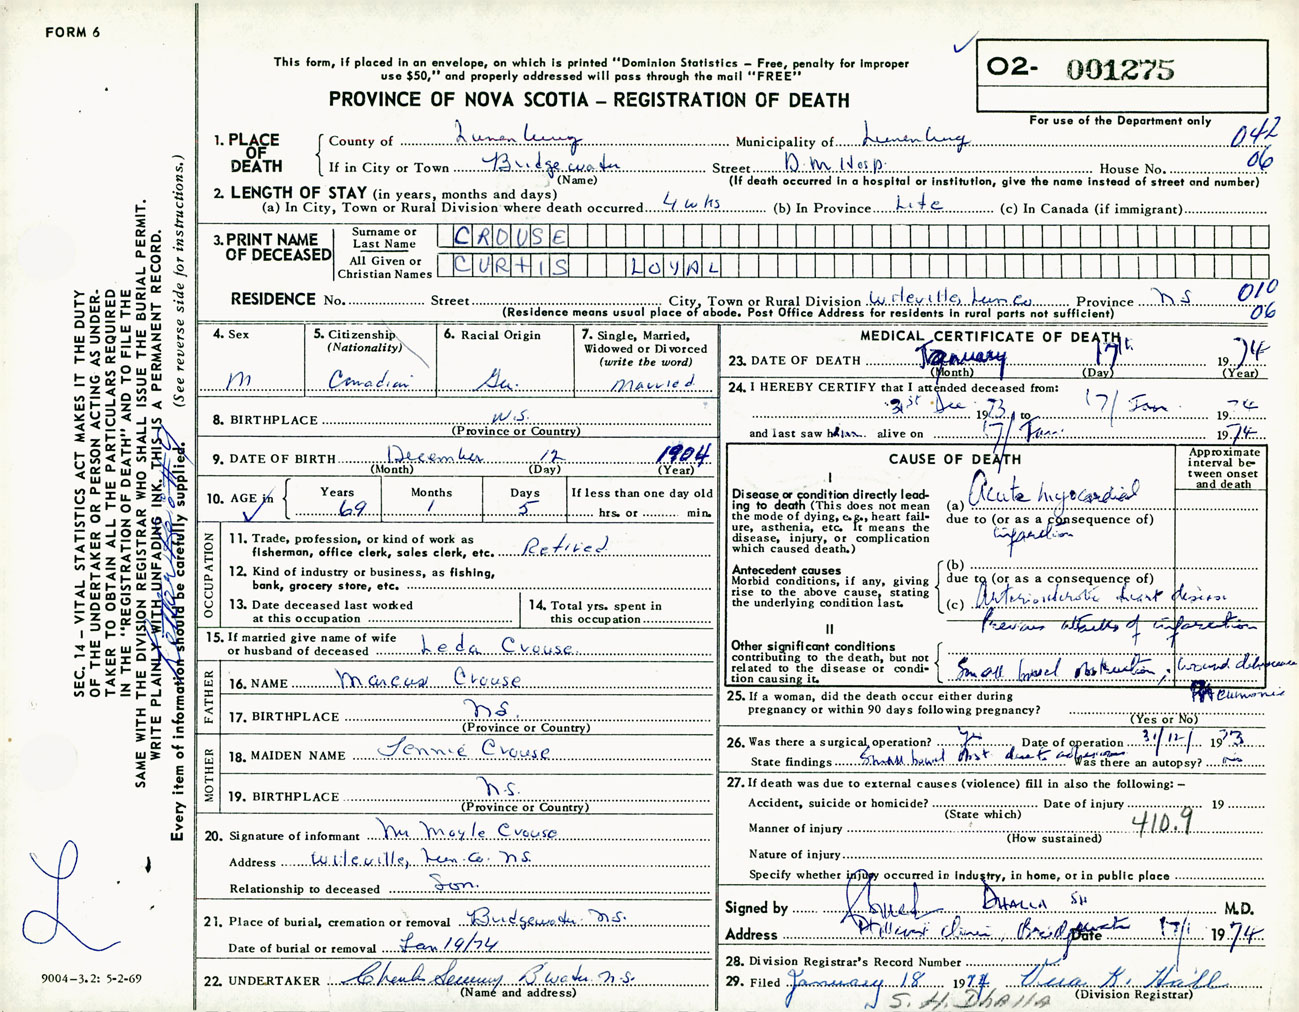 FORM 6
This form, if placed in an envelope, on which is printed "Dominion Statistics – Free, penalty for improper
use $50," and properly addressed will pass through the mail "FREE"
PROVINCE OF NOVA SCOTIA – REGISTRATION OF DEATH
O2- 001275
For use of the Department only
1. PLACE OF DEATH
County of Lunenburg Municipality of Lunenburg 042
If in City or Town Bridgewater Street D. M. Hosp. House No. 06
(Name) (If death occurred in a hospital or institution, give the name instead of street and number)
2. LENGTH OF STAY (in years, months and days)
(a) In City, Town or Rural Division where death occurred 4 wks (b) In Province Life (c) In Canada (if immigrant)
3. PRINT NAME OF DECEASED
Surname or Last Name CROUSE
All Given or Christian Names CURTIS LOYAL
RESIDENCE No. Street City, Town or Rural Division Wileville, Lun Co Province N S 010
(Residence means usual place of abode. Post Office Address for residents in rural parts not sufficient) 06
4. Sex
M
5. Citizenship
(Nationality)
Canadian
6. Racial Origin
Ger.
7. Single, Married,
Widowed or Divorced
(write the word)
Married
8. BIRTHPLACE N.S.
(Province or Country)
9. DATE OF BIRTH December 12 1904
(Month) (Day) (Year)
10. AGE in
Years Months Days If less than one day old
69 1 5 hrs. or min.
OCCUPATION
11. Trade, profession, or kind of work as
fisherman, office clerk, sales clerk, etc. Retired
12. Kind of industry or business, as fishing,
bank, grocery store, etc.
13. Date deceased last worked
at this occupation
14. Total yrs. spent in
this occupation
15. If married give name of wife
or husband of deceased Leda Crouse
FATHER
16. NAME Marcus Crouse
17. BIRTHPLACE N.S.
(Province or Country)
MOTHER
18. MAIDEN NAME Jennie Crouse
19. BIRTHPLACE N.S.
(Province or Country)
20. Signature of informant Mr. Moyle Crouse
Address Wileville, Lun. Co. N.S.
Relationship to deceased Son.
21. Place of burial, cremation or removal Bridgewater N.S.
Date of burial or removal Jan 19/74
22. UNDERTAKER B'water N.S.
(Name and address)
MEDICAL CERTIFICATE OF DEATH
23. DATE OF DEATH January 17th 1974
(Month) (Day) (Year)
24. I HEREBY CERTIFY that I attended deceased from:
31st Dec 1973 to 17/ Jan. 1974
and last saw him alive on 17/ Jan. 1974
CAUSE OF DEATH
Approximate
interval be-
tween onset
and death
I
Disease or condition directly lead-
ing to death (This does not mean
the mode of dying, e.g., heart fail-
ure, asthenia, etc. It means the
disease, injury, or complication
which caused death.)
(a) Acute myocardial
due to (or as a consequence of)
infarction
Antecedent causes
Morbid conditions, if any, giving
rise to the above cause, stating
the underlying condition last.
(b)
due to (or as a consequence of)
(c) Arteriosclerotic heart disease
Previous attacks of infarction
II
Other significant conditions
contributing to the death, but not
related to the disease or condi-
tion causing it.
Small bowel obstruction, wound dehiscence
Pneumonia
25. If a woman, did the death occur either during
pregnancy or within 90 days following pregnancy?
(Yes or No)
26. Was there a surgical operation? yes Date of operation 31/12/ 1973
State findings Small bowel obst due to adhesions Was there an autopsy? no
27. If death was due to external causes (violence) fill in also the following: –
Accident, suicide or homicide? Date of injury 19
(State which)
Manner of injury 410.9
(How sustained)
Nature of injury
Specify whether injury occurred in industry, in home, or in public place
Signed by DHALLA SH M.D.
Address Hillcrest Clinic, Bridgewater Date 17/1 1974
28. Division Registrar's Record Number
29. Filed January 18 1974 K. Hall
(Division Registrar)
S. H. DHALLA
SEC. 14 – VITAL STATISTICS ACT MAKES IT THE DUTY
OF THE UNDERTAKER OR PERSON ACTING AS UNDER-
TAKER TO OBTAIN ALL THE PARTICULARS REQUIRED
IN THE "REGISTRATION OF DEATH" AND TO FILE THE
SAME WITH THE DIVISION REGISTRAR WHO SHALL ISSUE THE BURIAL PERMIT.
WRITE PLAINLY WITH UNFADING INK. THIS IS A PERMANENT RECORD.
Every item of information should be carefully supplied. (See reverse side for instructions.)
9004-3.2: 5-2-69